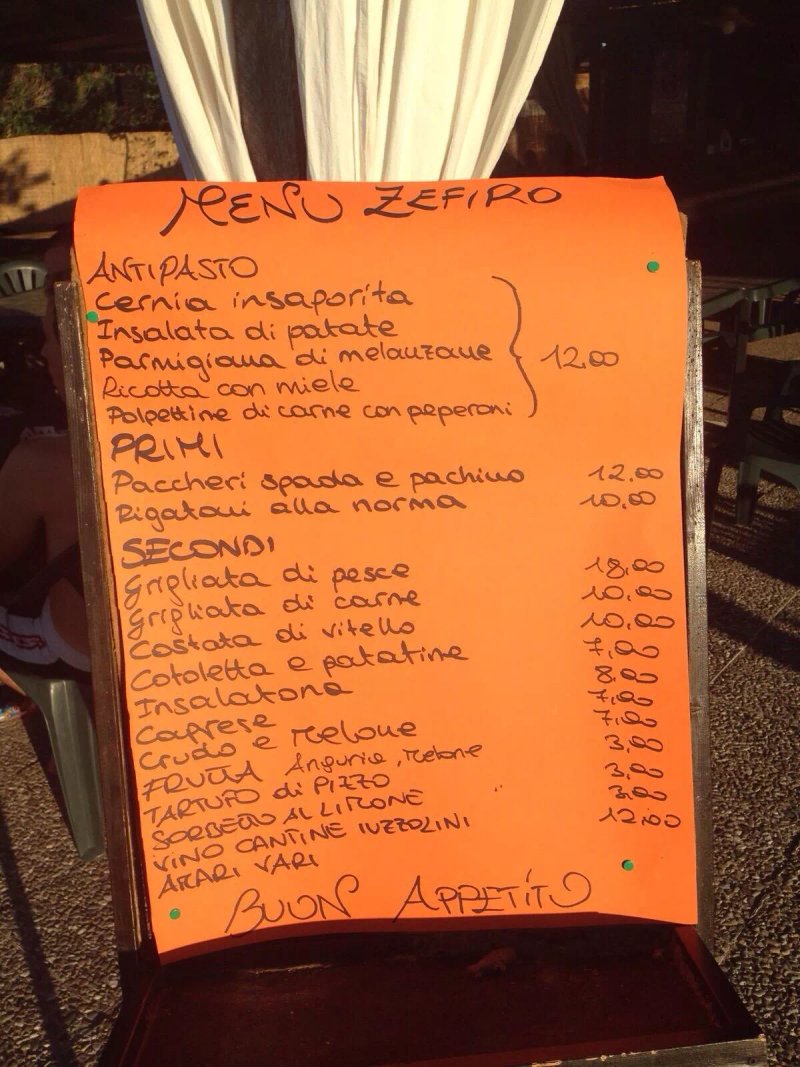 MENU ZEFIRO
ANTIPASTO
Cernia insaporita
Insalata di patate
Parmigiana di melanzane 12.00
Ricotta con miele
Polpettine di carne con peperoni
PRIMI
Paccheri spada e pachino 12.00
Rigatoni alla norma 10.00
SECONDI
Grigliata di pesce 18,00
Grigliata di carne 10,00
Costata di vitello 10,00
Cotoletta e patatine 7,00
Insalatona 8,00
Caprese 7,00
Crudo e Melone 7,00
FRUTTA Anguria, Melone 3,00
TARTUFO di PIZZO 3,00
SORBETTO AL LIMONE 3,00
VINO CANTINE IUZZOLINI 12,00
AMARI VARI
BUON APPETITO